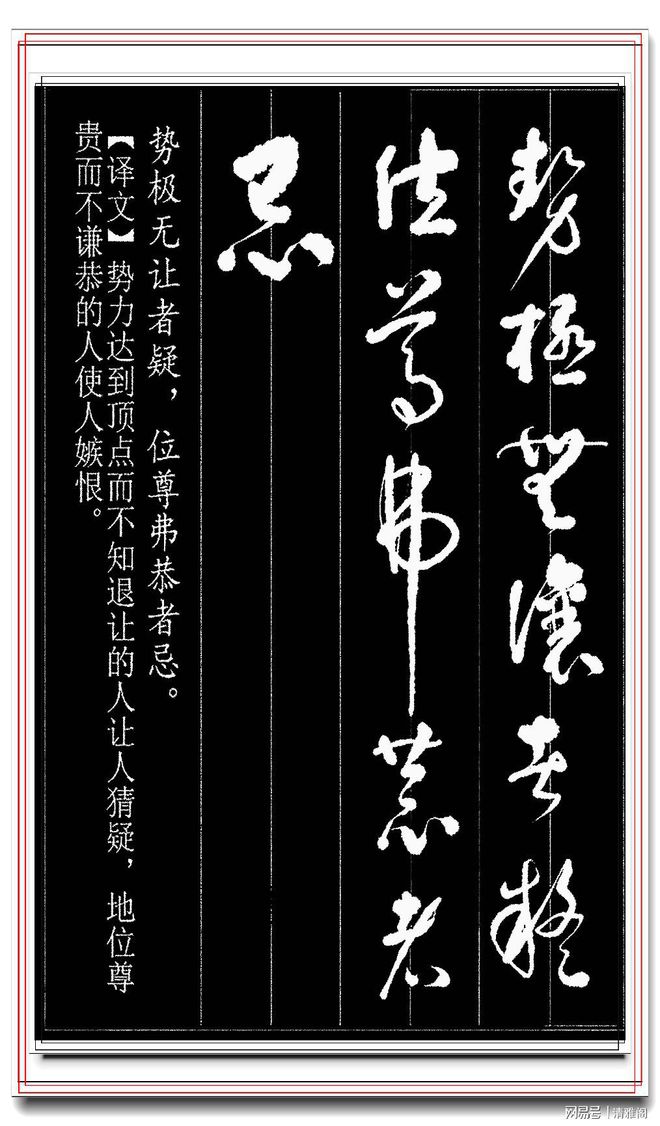 势极無讓者疑
位尊弗恭者
忌
势极无让者疑，位尊弗恭者忌。
【译文】势力达到顶点而不知退让的人让人猜疑，地位尊
贵而不谦恭的人使人嫉恨。
网易号|清雅阁